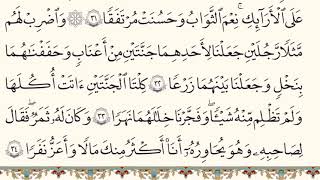 عَلَى ٱلْأَرَآئِكِ ۚ نِعْمَ ٱلثَّوَابُ وَحَسُنَتْ مُرْتَفَقًا ٣١ ۞ وَٱضْرِبْ لَهُم
مَّثَلًا رَّجُلَيْنِ جَعَلْنَا لِأَحَدِهِمَا جَنَّتَيْنِ مِنْ أَعْنَٰبٍ وَحَفَفْنَٰهُمَا
بِنَخْلٍ وَجَعَلْنَا بَيْنَهُمَا زَرْعًا ٣٢ كِلْتَا ٱلْجَنَّتَيْنِ ءَاتَتْ أُكُلَهَا
وَلَمْ تَظْلِم مِّنْهُ شَيْـًٔا ۚ وَفَجَّرْنَا خِلَٰلَهُمَا نَهَرًا ٣٣ وَكَانَ لَهُۥ ثَمَرٌ فَقَالَ
لِصَٰحِبِهِۦ وَهُوَ يُحَاوِرُهُۥٓ أَنَا۠ أَكْثَرُ مِنكَ مَالًا وَأَعَزُّ نَفَرًا ٣٤